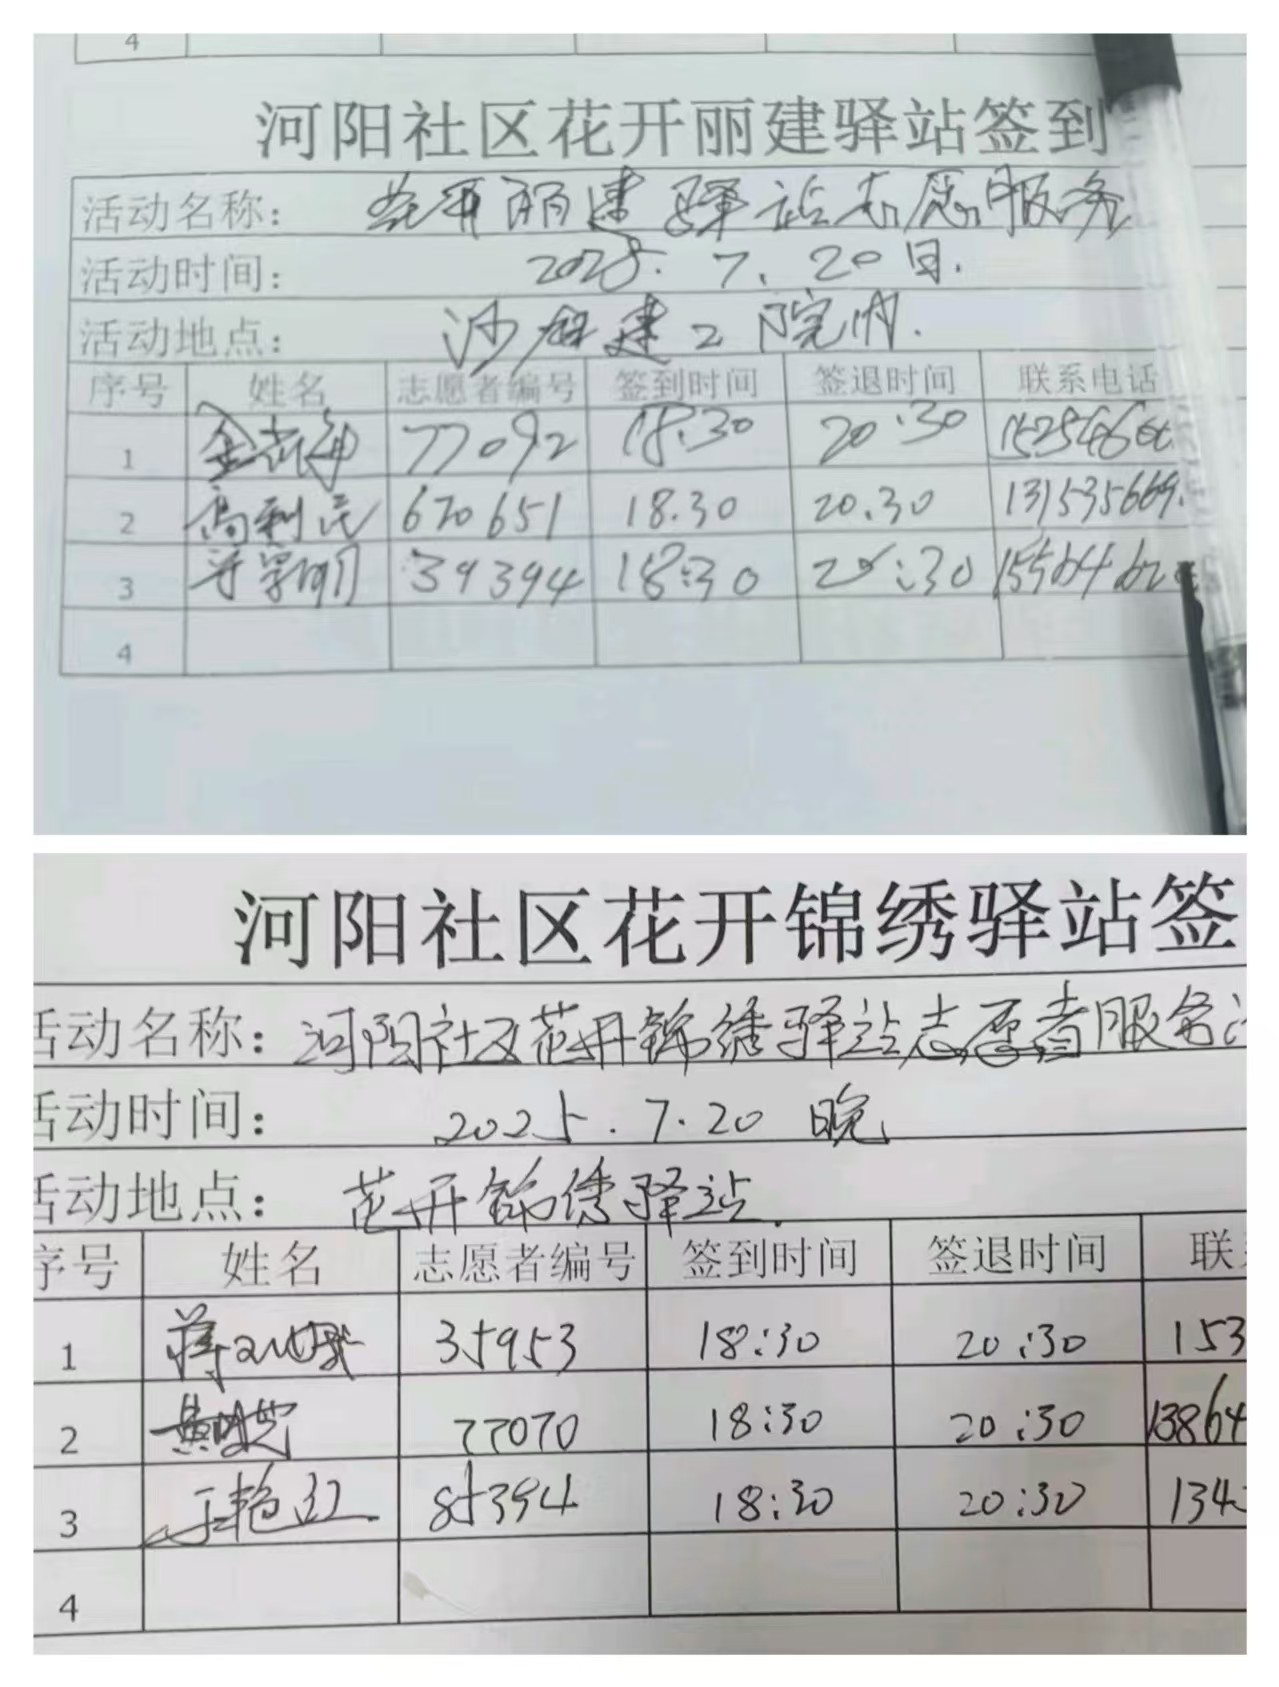 4
河阳社区花开丽建驿站签到
活动名称： 花开丽建驿站志愿服务
活动时间： 2025. 7. 20日.
活动地点： 沙 建 院内.
序号 姓名 志愿者编号 签到时间 签退时间 联系电话
1 77092 18:30 20:30
2 高利民 670651 18.30 20.30 131535669
3 39394 18:30 20:30
4
河阳社区花开锦绣驿站签
活动名称：河阳社区花开锦绣驿站志愿者服务
活动时间： 2025. 7. 20 晚
活动地点： 花开锦绣驿站.
序号 姓名 志愿者编号 签到时间 签退时间 联
1 35953 18:30 20:30 153
2 77070 18:30 20:30 13864
3 于艳红 85394 18:30 20:30 134
4